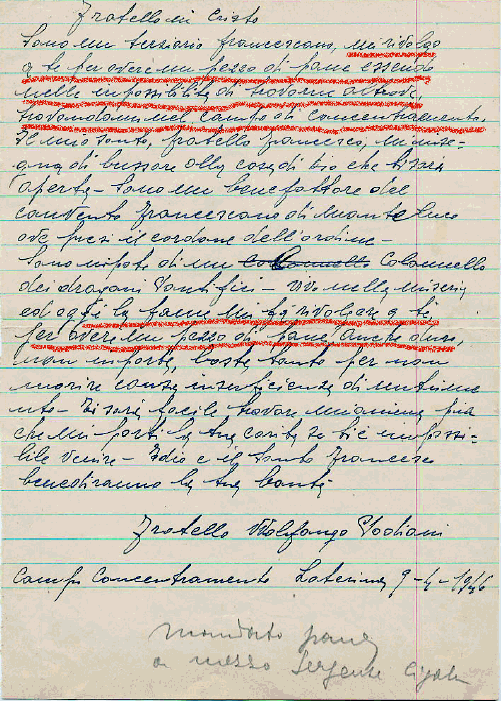 Fratello in Cristo
Sono un terziario francescano, mi rivolgo
a te per avere un pezzo di pane essendo
nella impossibilità di trovarne altrove,
trovandomi nel campo di concentramento.
Il mio Santo, fratello Francesco, mi inse-
gna di bussare alla casa di Dio che ti sarà
aperta - Sono un benefattore del
convento francescano di Monteluco
ove presi il cordone dell'ordine -
Sono nipote di un Colonnello
dei dragoni Pontifici - Vivo nella miseria
ed oggi la fame mi fa rivolgere a te,
per avere un pezzo di pane, anche duro,
non importa, basta tanto per non
morire causa insufficienza di nutrime
nto - Ti sarà facile trovare un'anima pia
che mi porti la tua carità se ti è impossi-
bile venire - Iddio e il Santo Francesco
benediranno la tua bontà -
Fratello Wolfango
Campo Concentramento Laterina 9-4-1946
mandato pane
a mezzo Sergente